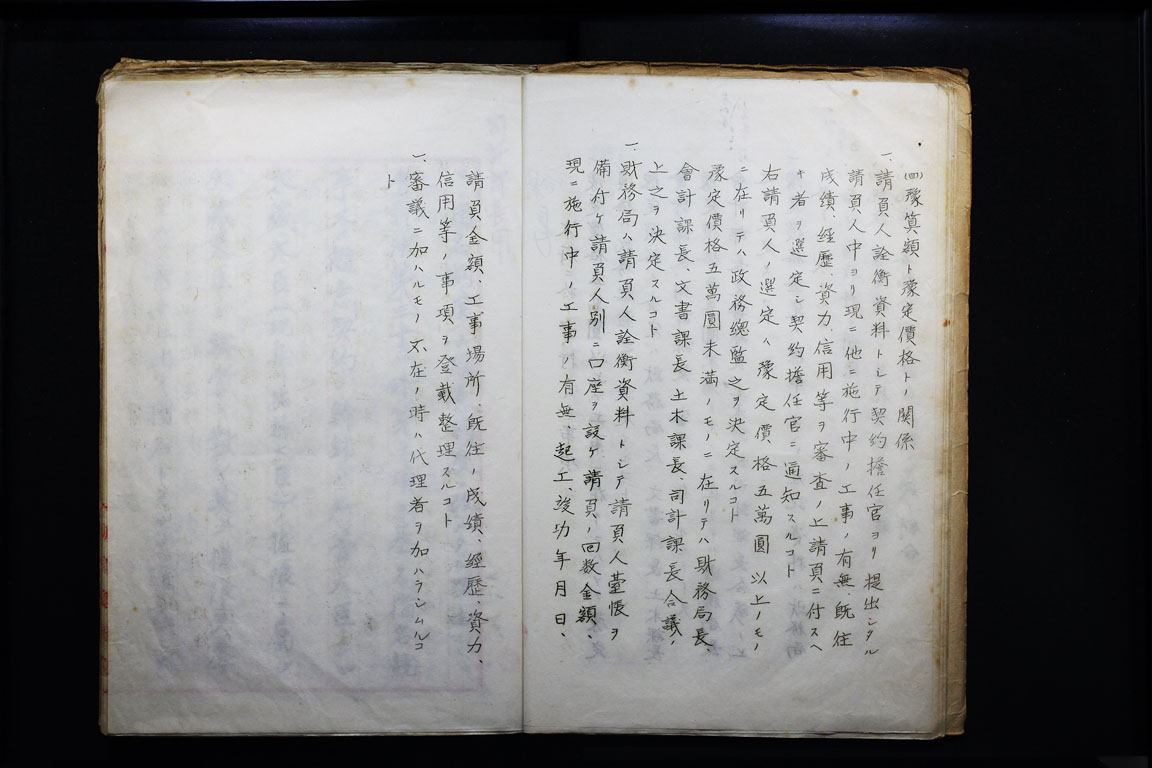 (四)豫算額ト豫定價格トノ関係
一、請負人詮衡資料トシテ契約擔任官ヨリ提出シタル
請負人中ヨリ現ニ他ニ施行中ノ工事ノ有無、既往
成績、經歷、資力、信用等ヲ審査ノ上請負ニ付スヘ
キ者ヲ選定シ契約擔任官ニ通知スルコト
右請負人ノ選定ハ豫定價格五萬圓以上ノモノ
ニ在リテハ政務總監之ヲ決定スルコト
豫定價格五萬圓未満ノモノニ在リテハ財務局長、
會計課長、文書課長、土木課長、司計課長合議ノ
上之ヲ決定スルコト
一、財務局ハ請負人詮衡資料トシテ請負人臺帳ヲ
備付ケ請負人別ニ口座ヲ設ケ請負ノ回数金額、
現ニ施行中ノ工事ノ有無、起工、竣功年月日、
請負金額、工事場所、既往ノ成績、經歷、資力、
信用等ノ事項ヲ登載整理スルコト
一、審議ニ加ハルモノ不在ノ時ハ代理者ヲ加ハラシムルコ
ト